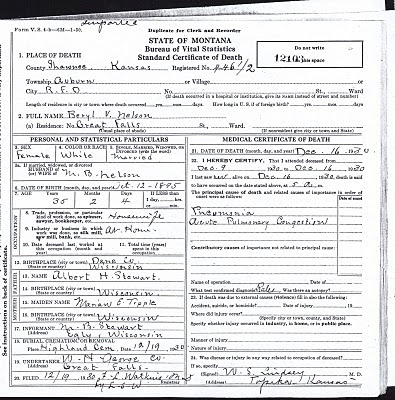 Form V. S. 4-b—6M—1-30.
Duplicate for Clerk and Recorder
STATE OF MONTANA
Bureau of Vital Statistics
Standard Certificate of Death
Do not write
this space
1. PLACE OF DEATH
County Shawnee Kansas
Registered No.
Township Auburn or Village
City R.F.D. No. St. Ward
(If death occurred in a hospital or institution, give its NAME instead of street and number)
Length of residence in city or town where death occurred yrs. mos. days. How long in U. S. if of foreign birth? yrs. mos. days.
2. FULL NAME Beryl V. Nelson
(a) Residence: No. Great Falls St. Ward
(Usual place of abode) (If nonresident give city or town and State)
PERSONAL AND STATISTICAL PARTICULARS
3. SEX
Female
4. COLOR OR RACE
White
5. SINGLE, MARRIED, WIDOWED, OR DIVORCED (write the word)
Married
5a. If married, widowed, or divorced
HUSBAND of
N. B. Nelson
6. DATE OF BIRTH (month, day, and year) Oct. 12-1895
7. AGE Years Months Days
35 2 4
8. Trade, profession, or particular kind of work done, as spinner, sawyer, bookkeeper, etc. Housewife
9. Industry or business in which work was done, as silk mill, saw mill, bank, etc. At Home
10. Date deceased last worked at this occupation (month and year)
11. Total time (years) spent in this occupation
12. BIRTHPLACE (city or town) Dane Co.
(State or country) Wisconsin
13. NAME Albert H. Stewart
14. BIRTHPLACE (city or town)
(State or country) Wisconsin
15. MAIDEN NAME
16. BIRTHPLACE (city or town)
(State or country) Wisconsin
17. INFORMANT Stewart
(Address) Wisconsin
18. BURIAL, CREMATION, OR REMOVAL
Place Highland Cem. Date 12/19 1930
19. UNDERTAKER W. H. George Co.
(Address) Great Falls
20. FILED 12/19 1930
Registrar
MEDICAL CERTIFICATE OF DEATH
21. DATE OF DEATH (month, day, and year) Dec. 16 1930
22. I HEREBY CERTIFY, That I attended deceased from
Dec. 9 1930 to Dec. 16 1930
I last saw her alive on Dec. 16 1930 death is said
to have occurred on the date stated above, at 5 a.m.
The principal cause of death and related causes of importance in order of onset were as follows:
Date of onset
Pneumonia
Acute Pulmonary Congestion
Contributory causes of importance not related to principal cause:
Name of operation Date of
What test confirmed diagnosis? Was there an autopsy?
23. If death was due to external causes (violence) fill in also the following:
Accident, suicide, or homicide? Date of injury 19
Where did injury occur?
(Specify city or town, county, and State)
Specify whether injury occurred in industry, in home, or in public place.
Manner of injury
Nature of injury
24. Was disease or injury in any way related to occupation of deceased?
If so, specify
(Signed) W. S. Lindsey M. D.
(Address) Topeka, Kansas
See Instructions on back of certificate.